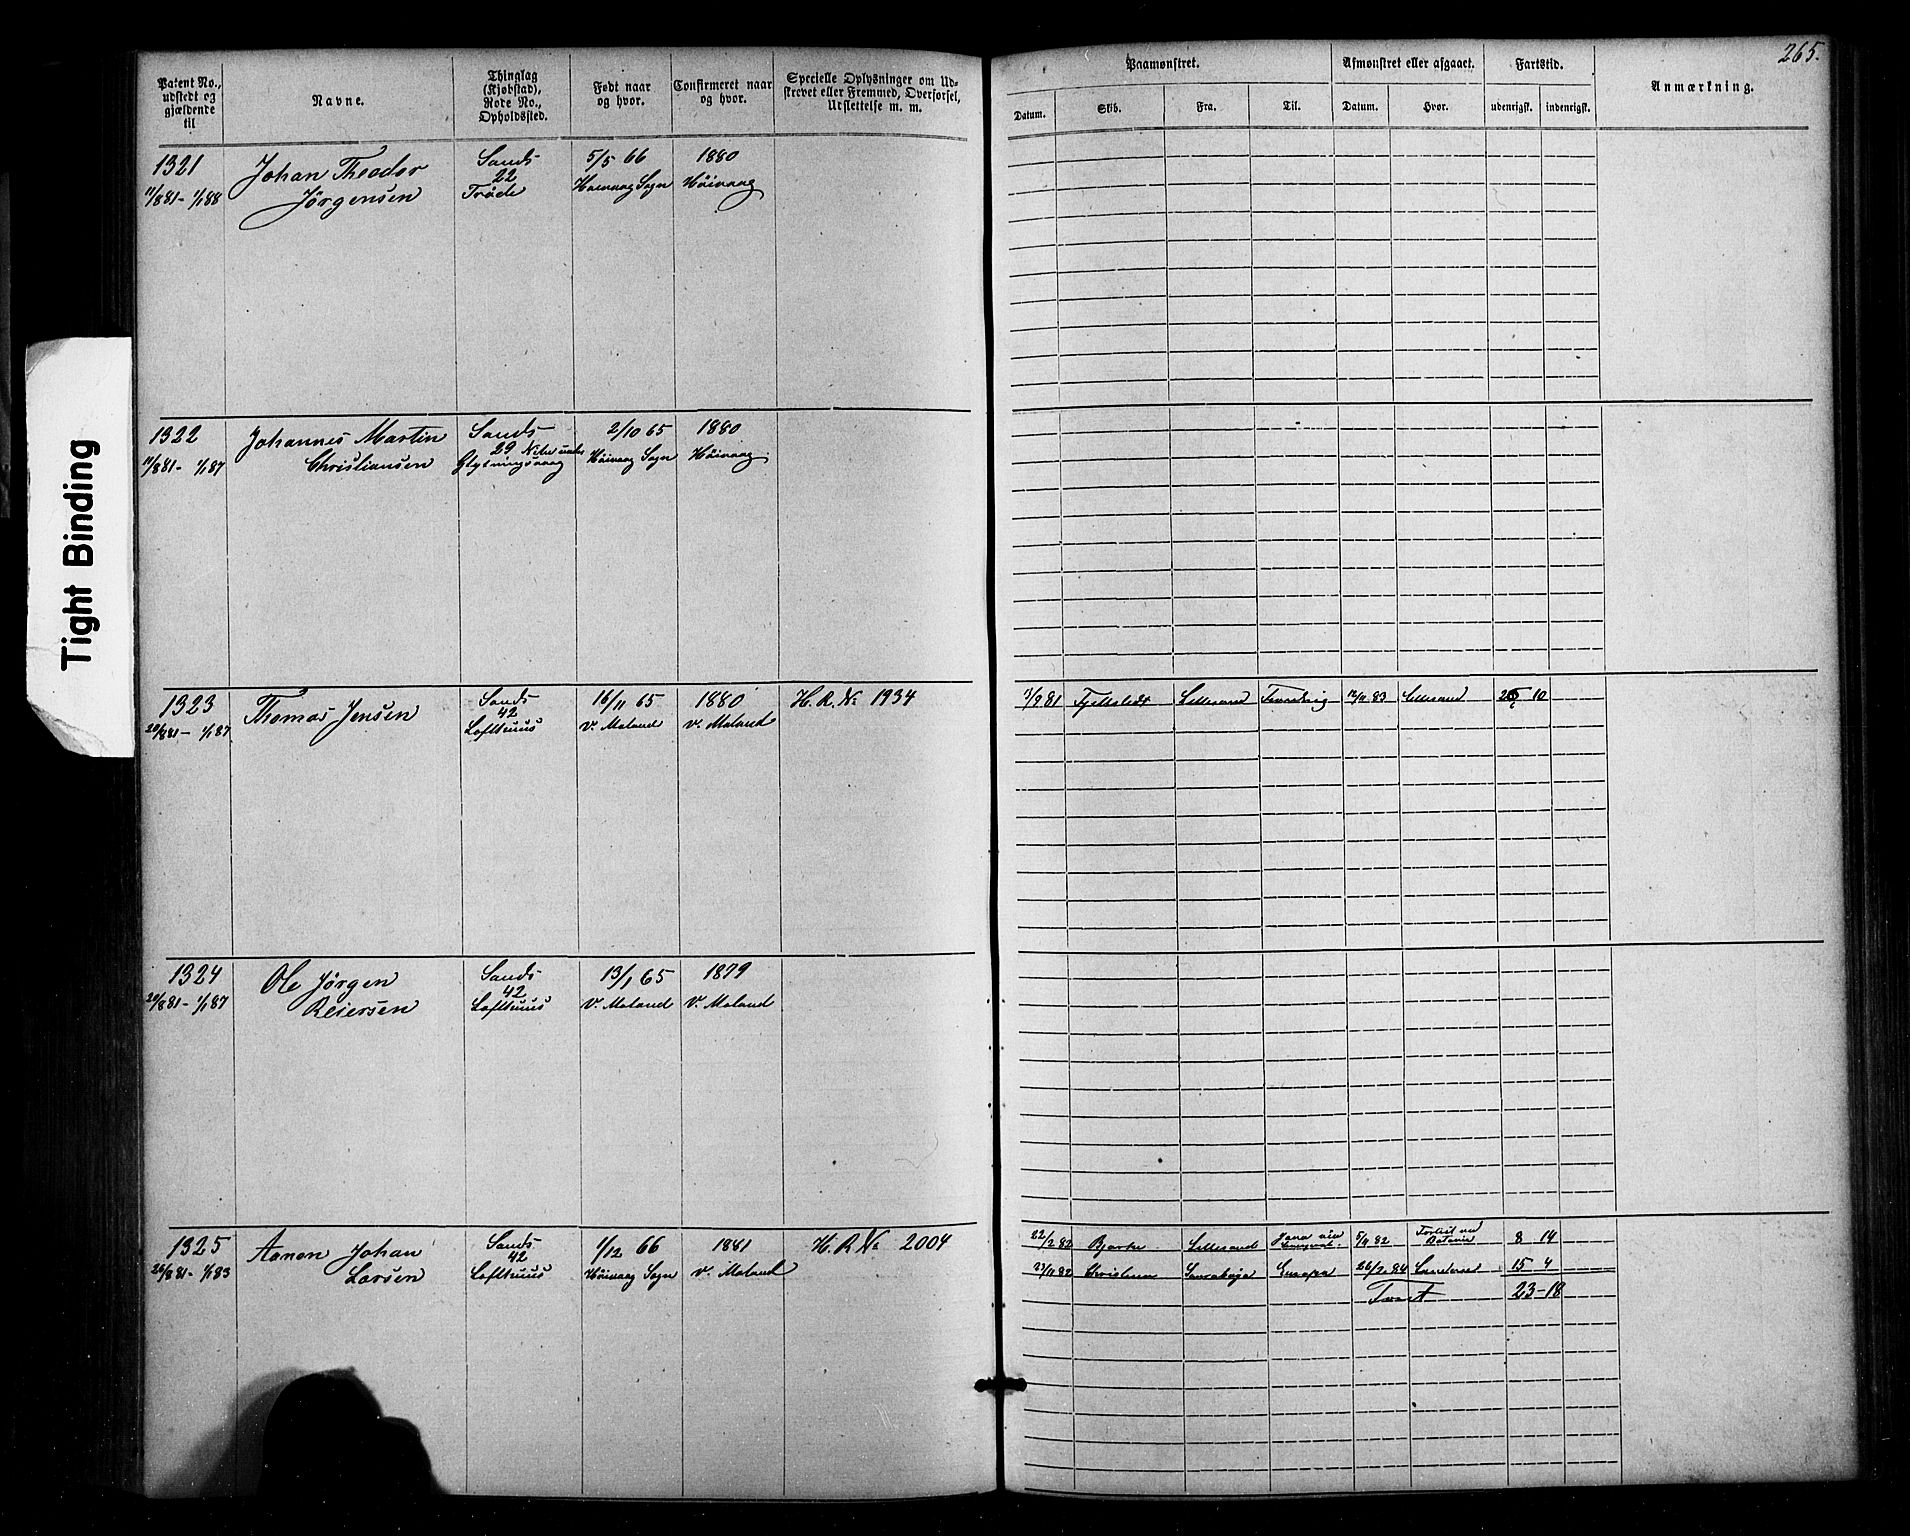 265.
Patent No., udstedt og gjældende til
Navne.
Thinglag (Kjøbstad), Rode No., Opholdssted.
Født naar og hvor.
Confirmeret naar og hvor.
Specielle Oplysninger om Udskrevet eller Fremmed, Overførsel, Udslettelse m. m.
Paamønstret.
Afmønstret eller afgaaet.
Fartstid.
Anmærkning.
Datum.
Skib.
Fra.
Til.
Datum.
Hvor.
udenrigsk.
indenrigsk.
1321 Johan Theodor Sands 5/5 66 1880
22
11/8 81 - 1/1 88 Jörgensen Trøde Høivaag Sogn Höivaag
1322 Johannes Martin Sands 2/10 65 1880
29
11/8 81 - 1/1 87 Christiansen Höivaag Sogn Höivaag
1323 Thomas Jensen Sands 16/11 65 1880 H. R. No 1934
42
20/8 81 - 1/1 87 Lofthuus V. Moland V. Moland
Lillesand 12/11 83 Lillesand 10
1324 Ole Jörgen Sands 13/1 65 1879
42
20/8 81 - 1/1 87 Reiersen Lofthuus V. Moland V. Moland
1325 Aanon Johan Sands 1/12 66 1881 H. R No 2004
42
26/8 81 - 1/1 83 Larsen Lofthuus Höivaag Sogn V. Moland
22/2 82 Bjarke Lillesand 5/11 82 Batavia 8 14
23/11 82 Europa 26/2 84 15 4
23-18
Tight Binding